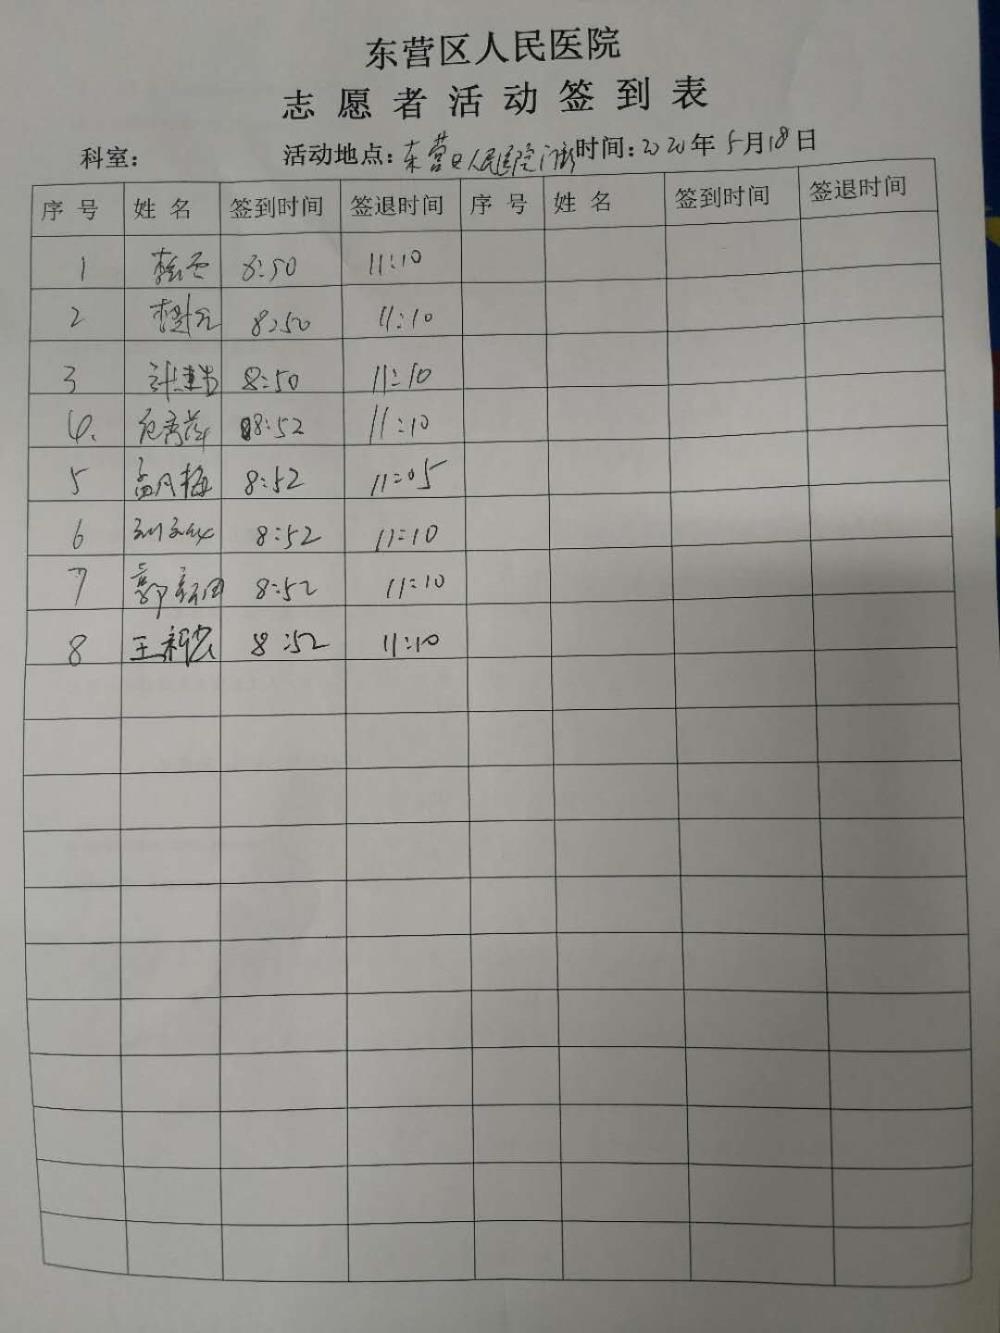 东营区人民医院
志愿者活动签到表
科室： 活动地点：东营区人民医院门诊 时间：2020年5月18日
序号 姓名 签到时间 签退时间 序号 姓名 签到时间 签退时间
1 8:50 11:10
2 8:50 11:10
3 8:50 11:10
4. 8:52 11:10
5 孟凡梅 8:52 11:05
6 8:52 11:10
7 郭 8:52 11:10
8 王 8:52 11:10